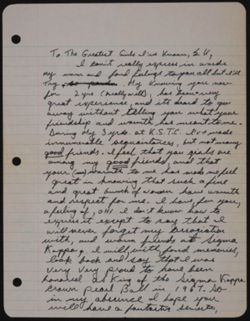 To The Greatest Girls I've Known, S.K,
I can't really express in words
my warm and fond feelings to you all but I'll
try My knowing you now
for 2 yrs (really well), has been very
great experience, and it's hard to go
away without telling you what your
friendship and warmth has meant to me.
During My 3 yrs at K.S.T.C. I've made
innumerable acquaintances, but not many
good friends. I feel that you girls are
among my good friends, and that
your warmth to me has made me feel
great in knowing that such a fine
and great bunch of women have warmth
and respect for me. I have, for you,
a feeling of, oh I don't know how to
express it except to say that I
will never forget my association
with, and warm friends at Sigma
Kappa, I will, with fond memories,
look back and say that I was
very very proud to have been
honored as King of the Sigma Kappa
Crown Pearl Ball in 1967. So
in my absence I hope your
will have a fantastic semester,